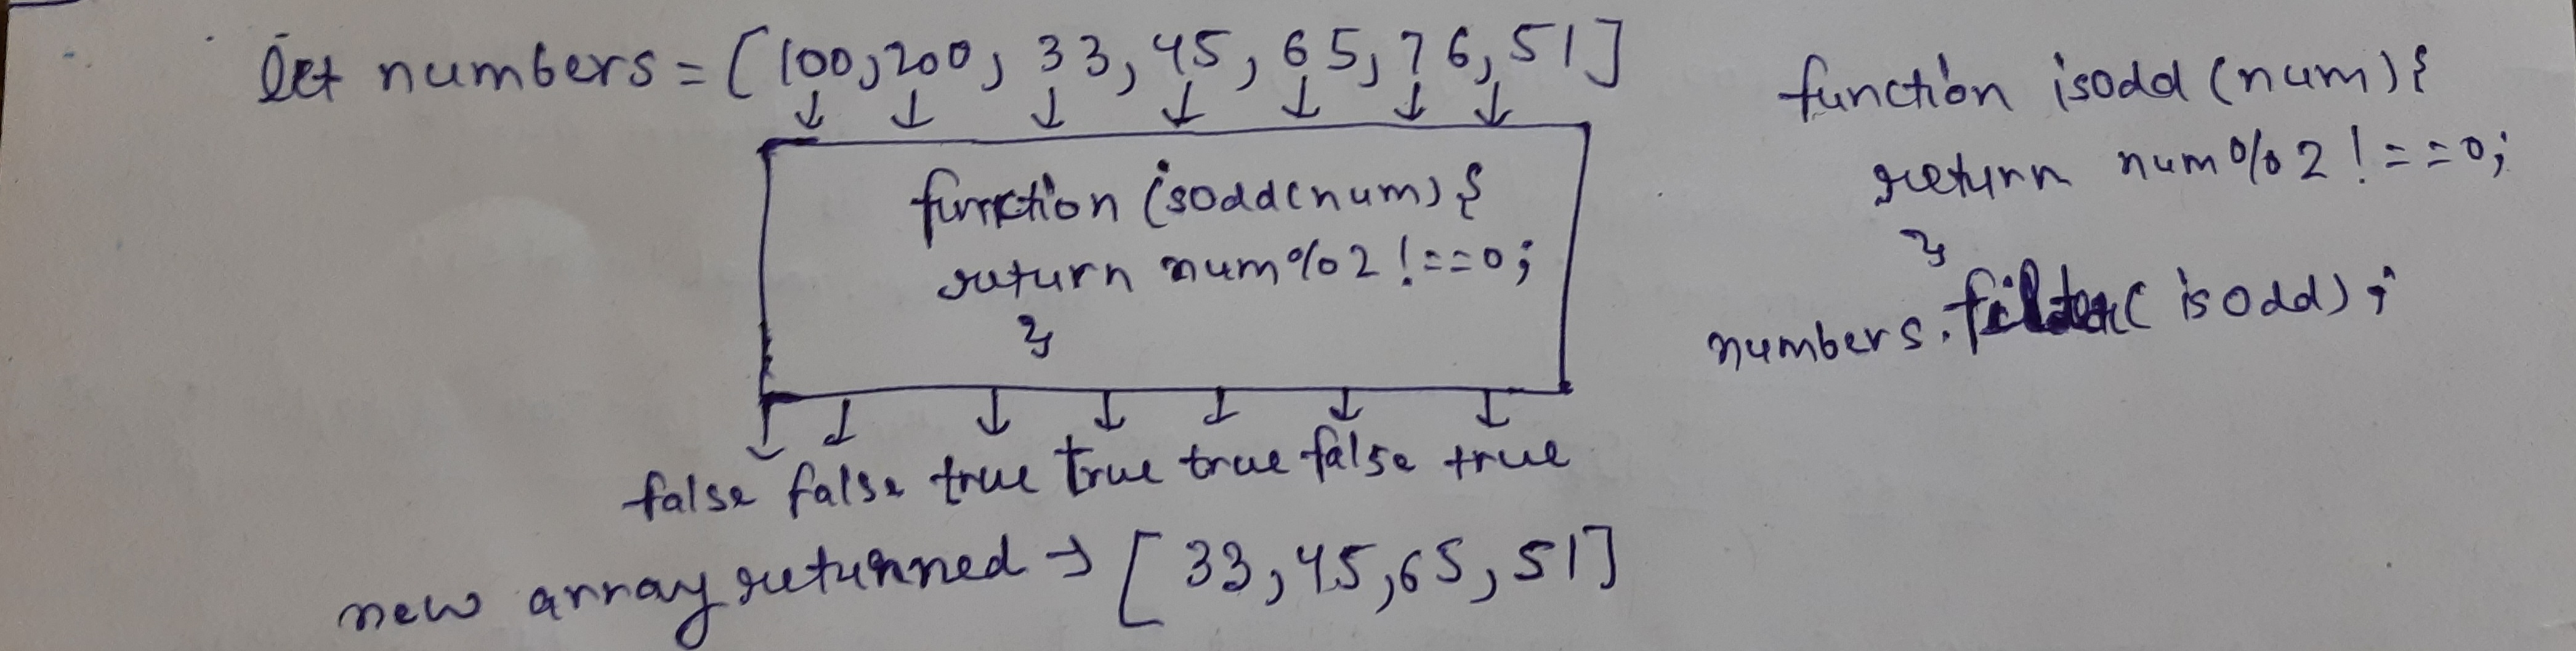 let numbers = [100, 200, 33, 45, 65, 76, 51]
function (isodd(num) {
return num%2!==0;
}
false false true true true false true
new array returned → [33, 45, 65, 51]
function isodd (num) {
return num%2!==0;
}
numbers.filter( isodd);